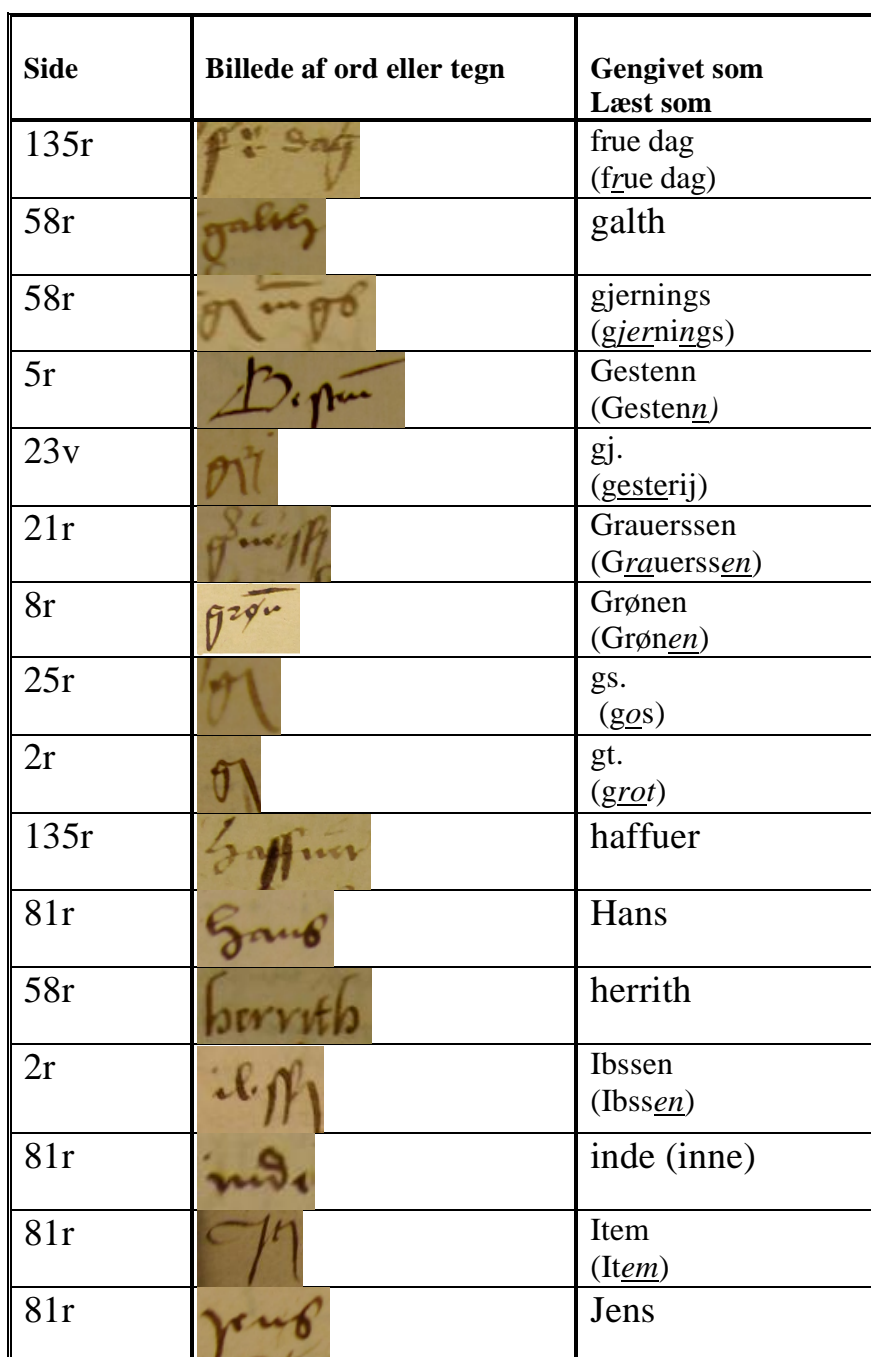 Side Billede af ord eller tegn Gengivet som
Læst som
135r frue dag
(frue dag)
58r galth galth
58r gjernings
(gjernings)
5r Gestenn
(Gestenn)
23v gj.
(gesterij)
21r Grauerssen
(Grauerssen)
8r Grønen
(Grønen)
25r gs.
(gos)
2r gt.
(grot)
135r haffuer haffuer
81r Hans Hans
58r herrith herrith
2r Ibssen
(Ibssen)
81r inde inde (inne)
81r Item
(Item)
81r Jens Jens